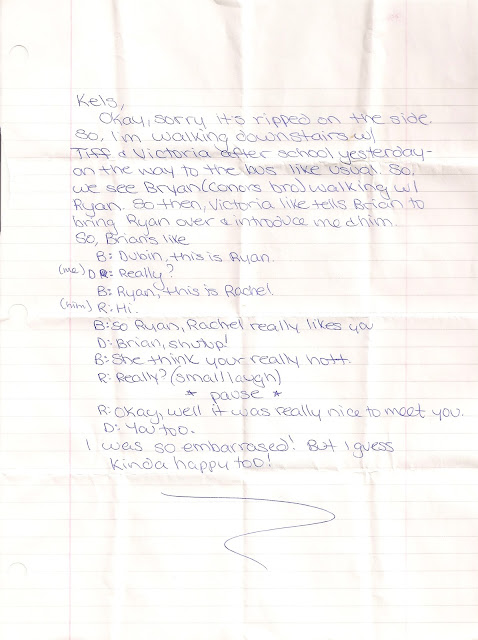 Kels,
Okay, sorry it's ripped on the side.
So, I'm walking downstairs w/
Tiff & Victoria after school yesterday-
on the way to the bus like usual. So,
we see Bryan (Conors bro) walking w/
Ryan. So then, Victoria like tells Brian to
bring Ryan over & introduce me & him.
So, Brian's like
B: Dubin, this is Ryan.
(me) D: Really?
B: Ryan, this is Rachel.
(him) R: Hi.
B: so Ryan, Rachel really likes you
D: Brian, shutup!
B: She think your really hott.
R: Really? (small laugh)
* pause *
R: Okay, well it was really nice to meet you.
D: You too.
I was so embarrased! But I guess
kinda happy too!